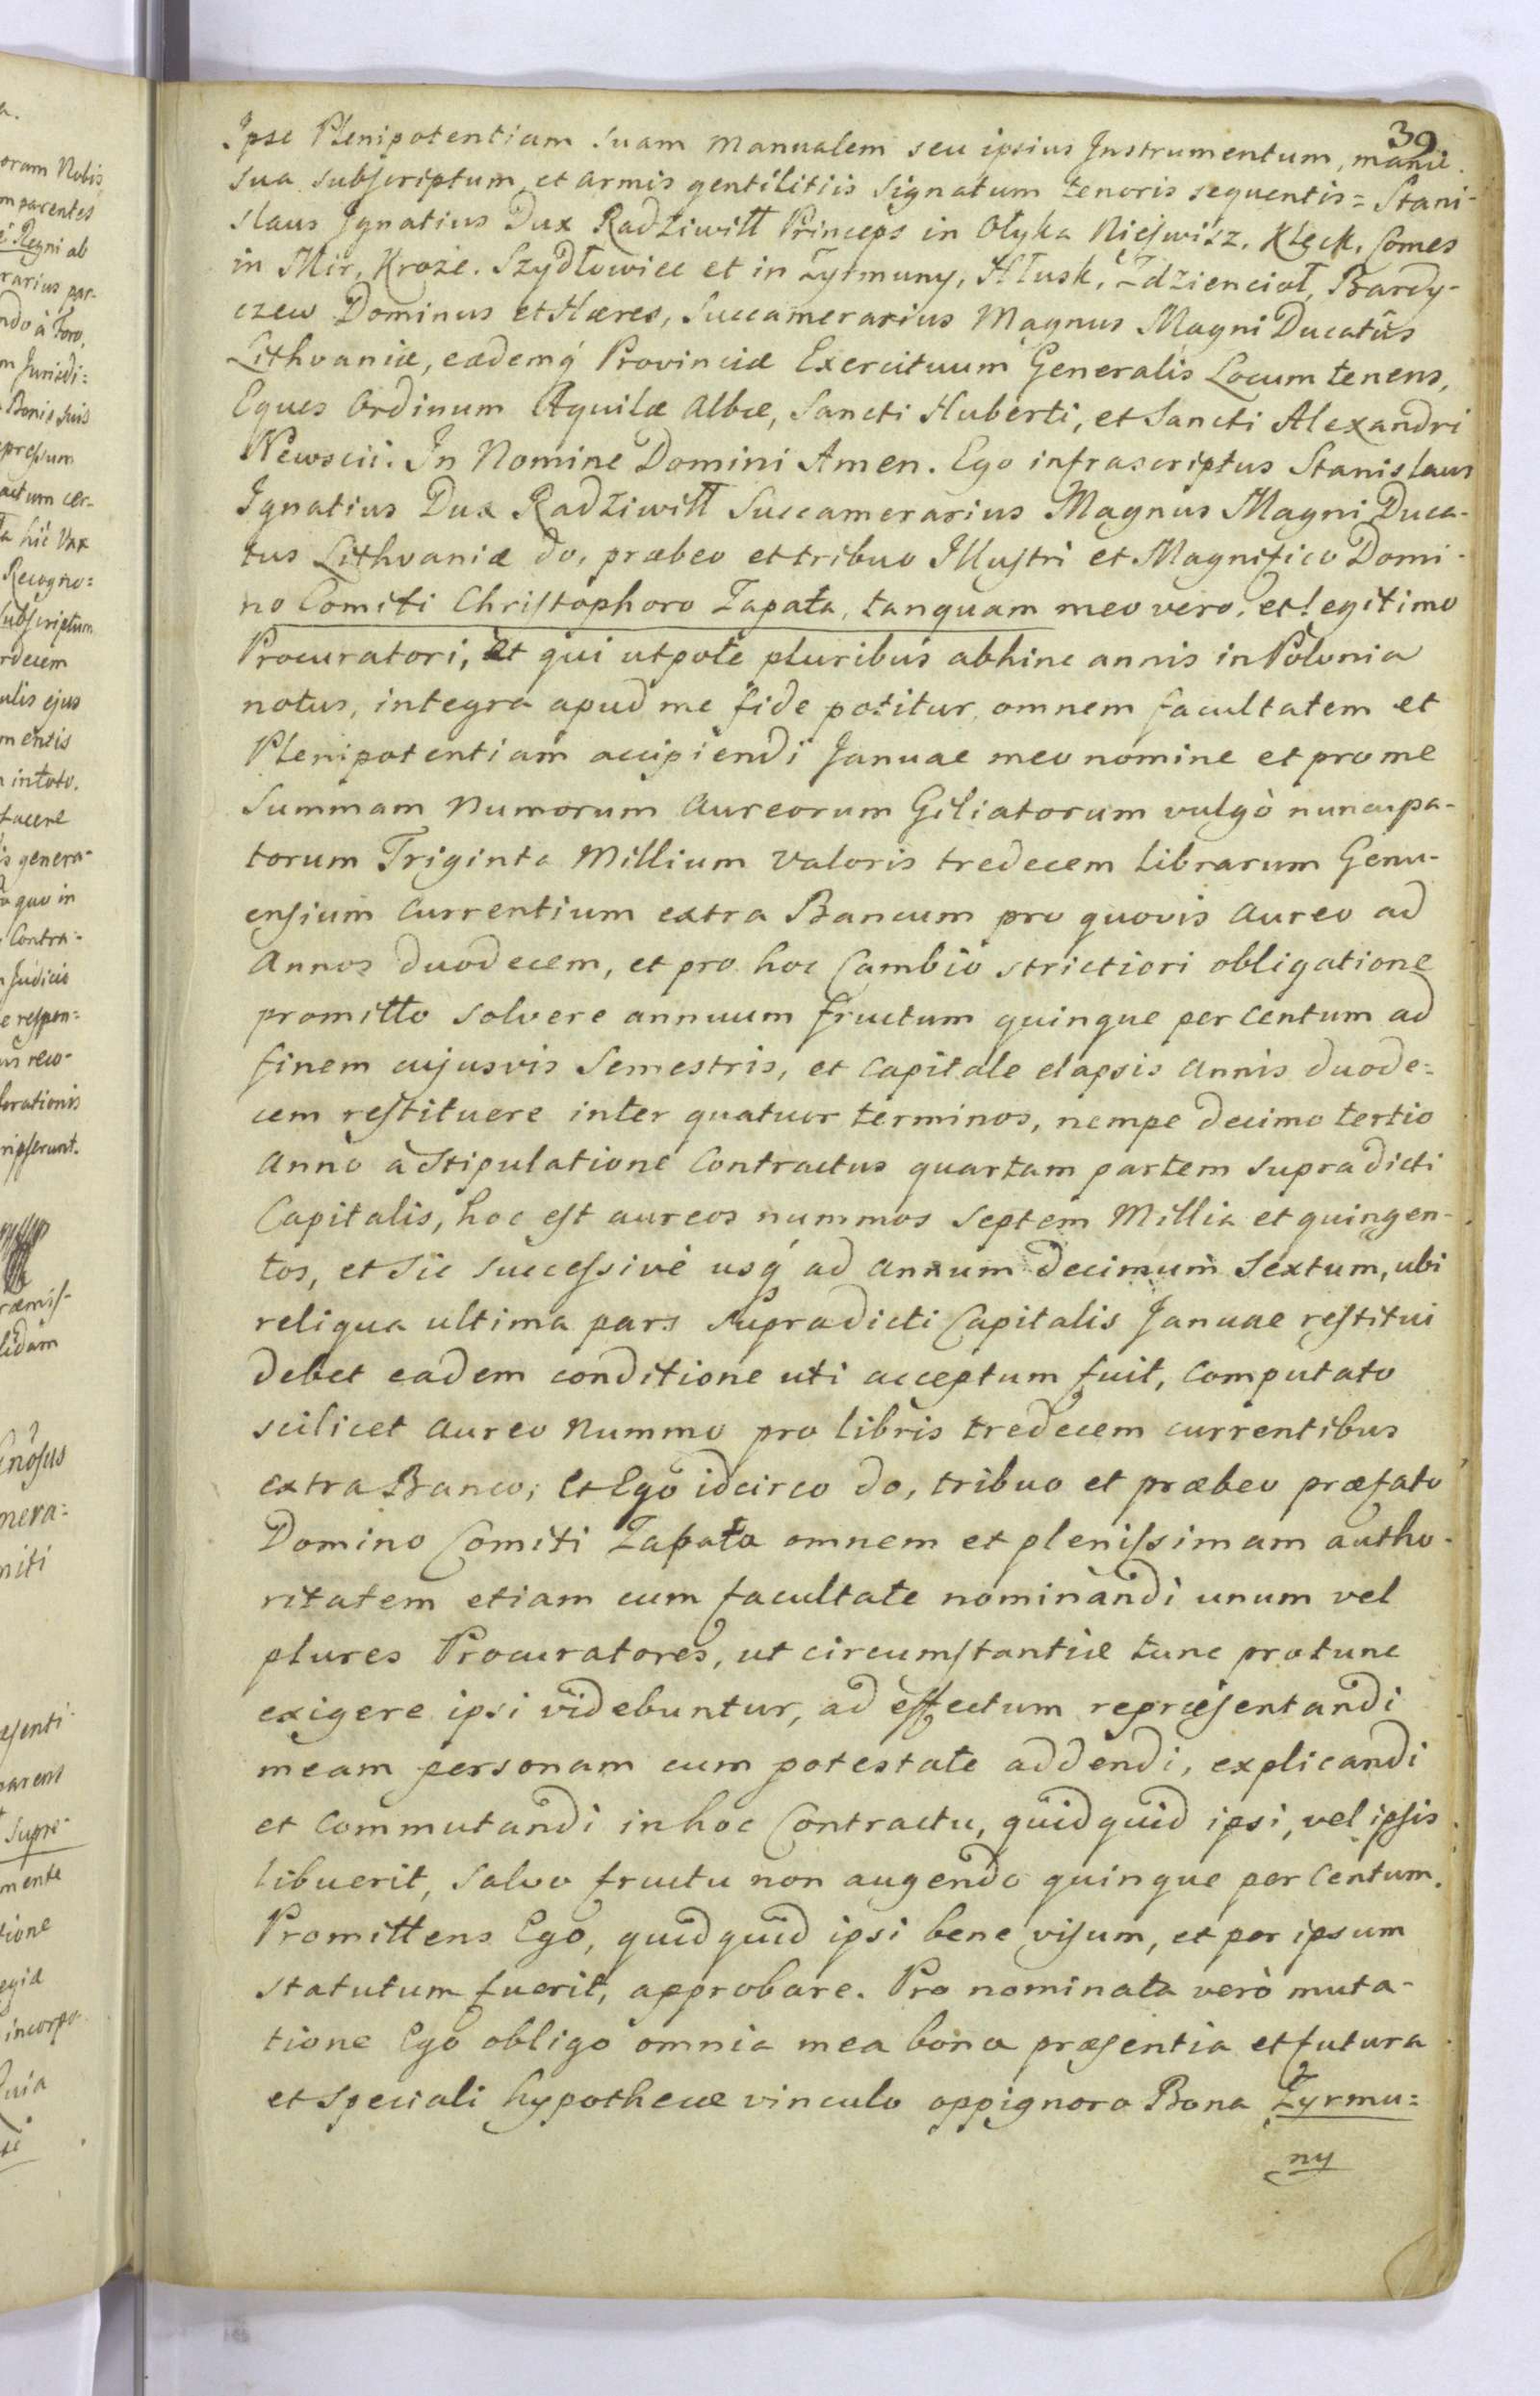 39
Ipse Plenipotentiam suam manualem seu ipsius Instrumentum, manu
sua subscriptum et armis gentilitiis signatum tenoris sequentis = Stani-
slaus Ignatius Dux Radziwiłł Princeps in Ołyka Nieswisz, Kłeck, Comes
in Mir, Kroże, Szydłowiec et in Żyrmuny, Hłusk, Zdziencioł, Bardy-
czew Dominus et Hæres, Succamerarius Magnus Magni Ducatûs
Lithvaniæ, eædemq́ Provinciæ Exercituum Generalis Locum tenens,
Eques Ordinum Aquilæ Albæ, Sancti Huberti, et Sancti Alexandri
Newscii. In Nomine Domini Amen. Ego infrascriptus Stanislaus
Ignatius Dux Radziwiłł Succamerarius Magnus Magni Duca-
tus Lithvaniæ do, præbeo et tribuo Illustri et Magnifico Domi-
no Comiti Christophoro Zapata, tanquam meo vero, et legitimo
Procuratori, Et qui utpote pluribus abhinc annis in Polonia
notus, integra apud me fide potitur, omnem facultatem et
Plenipotentiam accipiendi Januae meo nomine et pro me
Summam Numorum Aureorum Giliatorum vulgò nuncupa-
torum Triginta Millium Valoris tredecem librarum Genu-
ensium Currentium extra Bancum pro quovis Aureo ad
Annos duodecem, et pro hoc Cambio strictiori obligatione
promitto solvere annuum fructum quinque per Centum ad
finem cujusvis Semestris, et Capitale elapsis Annis duode=
cem restituere inter quatuor terminos, nempe decimo tertio
Anno à Stipulatione Contractus quartam partem supradicti
Capitalis, hoc est aureos nummos Septem Millia et quingen-
tos, et sic successivè usq́ ad Annum decimum Sextum, ubi
reliqua ultima pars supradicti Capitalis Januae restitui
debet eadem conditione uti acceptum fuit, Computato
scilicet Aureo Nummo pro libris tredecem currentibus
extra Banco; Et Ego idcirco do, tribuo et præbeo præfato
Domino Comiti Zapata omnem et plenissimam autho-
ritatem etiam cum facultate nominandi unum vel
plures Procuratores, ut circumstantiæ tunc protunc
exigere ipsi videbuntur, ad effectum repræsentandi
meam personam cum potestate addendi, explicandi
et Commutandi in hoc Contractu, quidquid ipsi, vel ipsis
libuerit, Salvo fructu non augendo quinque per Centum.
Promittens Ego, quidquid ipsi bene visum, et per ipsum
statutum fuerit, approbare. Pro nominata verò muta-
tione Ego obligo omnia mea bona præsentia et futura
et speciali hypothecæ vinculo oppignoro Bona Żyrmu=
ny